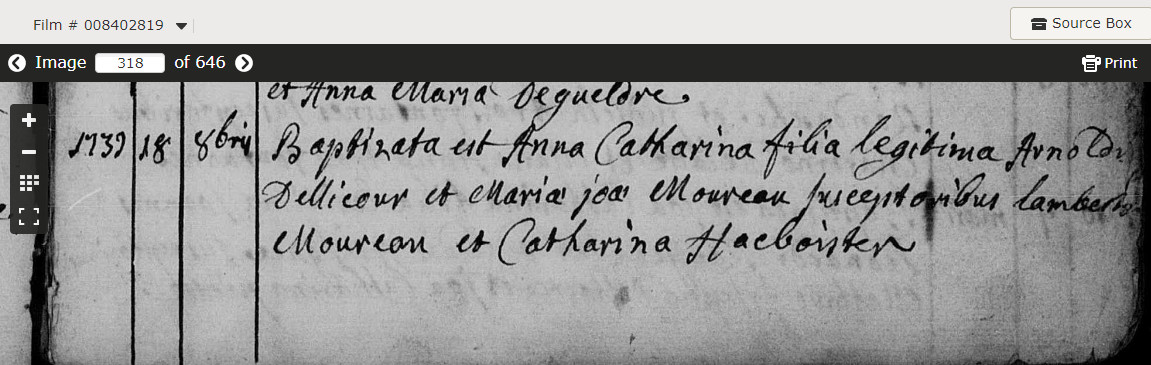 Film # 008402819
Source Box
Image 318 of 646
Print
et Anna Maria Degueldre
1739 18 8bris Baptizata est Anna Catharina filia legitima Arnoldi
Dellicour et Mariæ joæ Moureau susceptoribus lamberto
Moureau et Catharina Haeboister